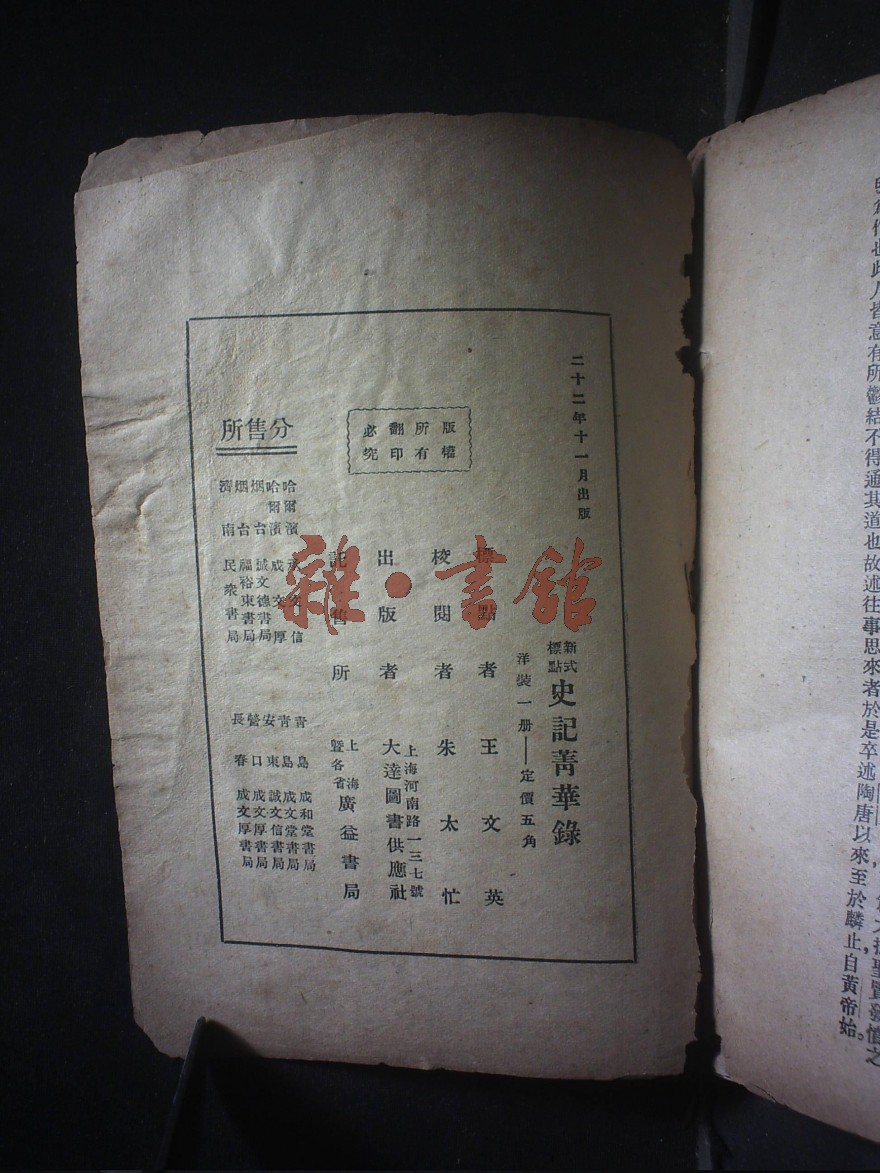 二十二年十一月出版
新式標點
史記菁華錄
洋裝一册——定價五角
標點者 王文英
校閱者 朱太忙
出版者
上海河南路一三七號
大達圖書供應社
記售所
上海暨各省
廣益書局
版權所有
翻印必究
分售所
哈爾濱
哈爾濱 成文厚
烟台 誠文德書局
烟台 福裕東書局
濟南 民衆書局
青島 成和堂書局
青島 成文堂書局
安東 誠文信書局
營口 成文厚書局
長春 成文厚書局
雜·書館
所爲作也此人皆意有所鬱結不得通其道也故述往事思來者於是卒述陶唐以來至於麟止自黃帝始。